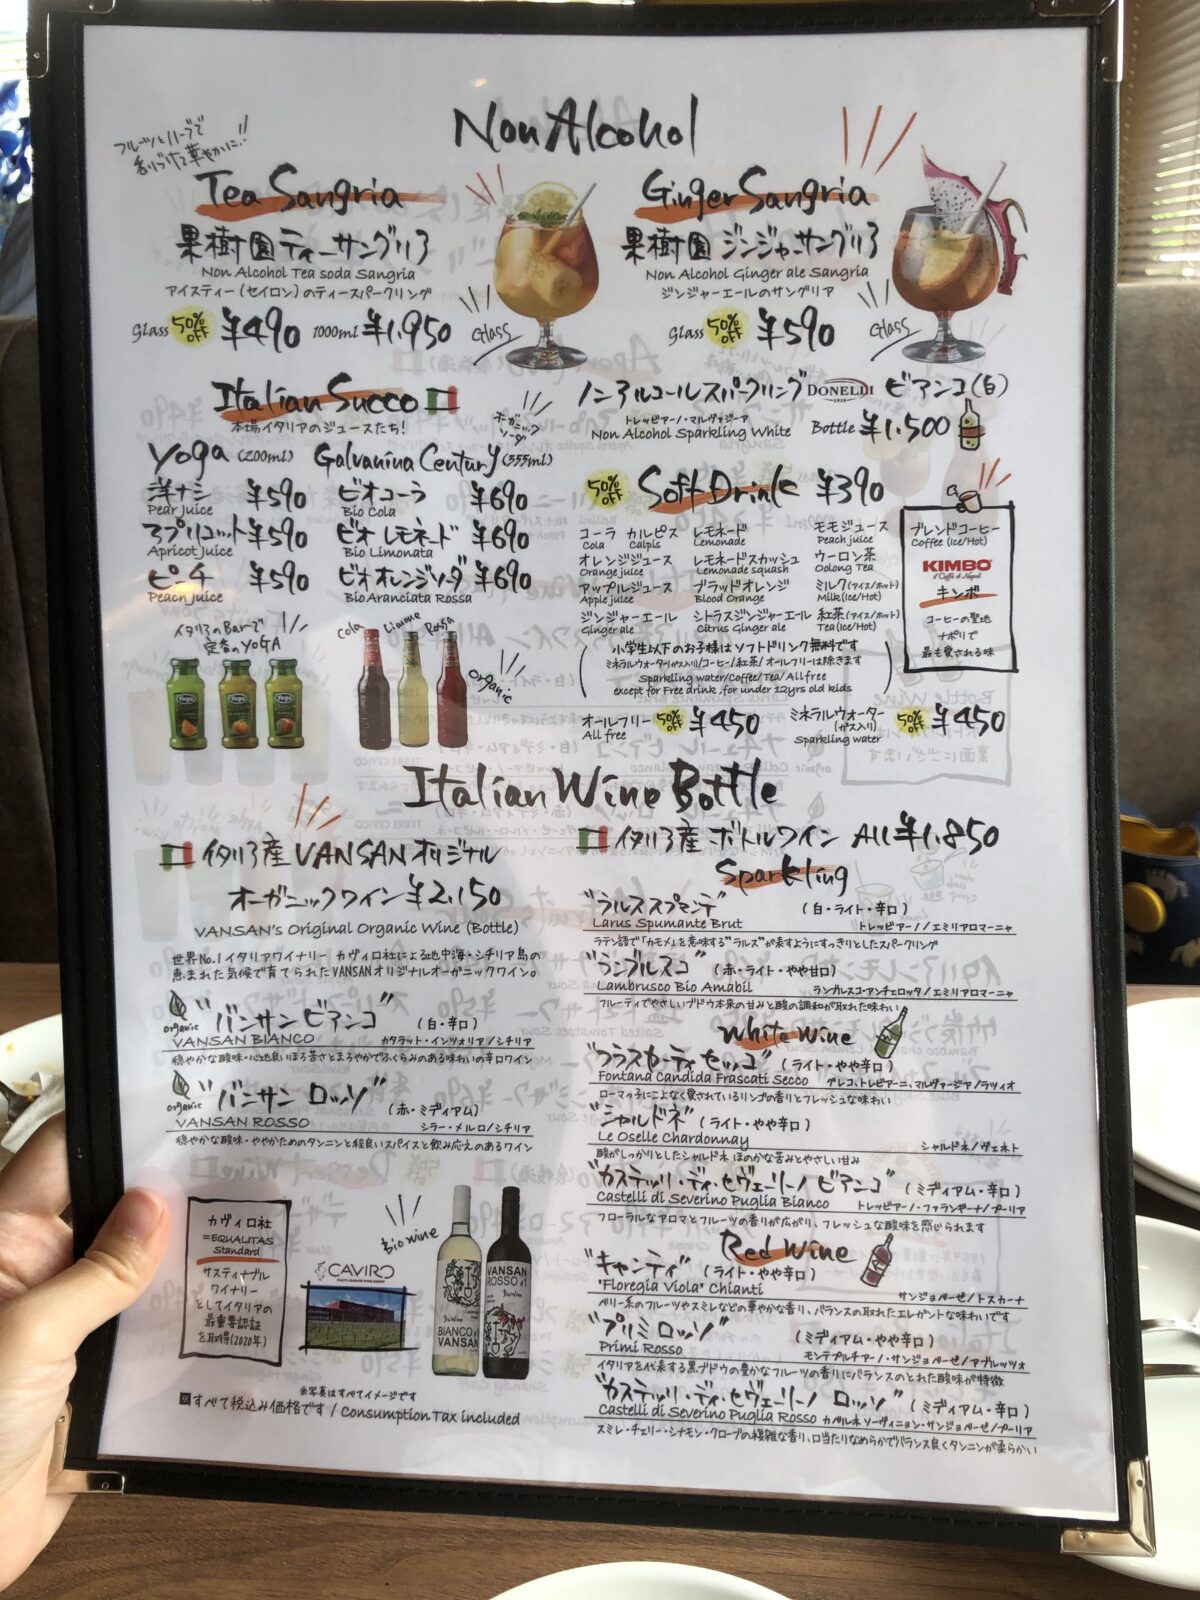 Non Alcohol
フルーツとハーブで
香りづけて華やかに!!
Tea Sangria
果樹園 ティーサングリア
Non Alcohol Tea soda Sangria
アイスティー(セイロン)のティースパークリング
Glass 50% OFF ¥490 1000ml ¥1,950
Glass
Ginger Sangria
果樹園 ジンジャーサングリア
Non Alcohol Ginger ale Sangria
ジンジャーエールのサングリア
Glass 50% OFF ¥590
Glass
Italian Succo
本場イタリアのジュースたち!
オーガニックソーダ
Yoga (200ml) Galvanina Century (355ml)
洋ナシ ¥590 ビオコーラ ¥690
Pear juice Bio Cola
アプリコット ¥590 ビオ レモネード ¥690
Apricot juice Bio Limonata
ピーチ ¥590 ビオ オレンジソーダ ¥690
Peach juice Bio Aranciata Rossa
イタリアのBarで
定番のYOGA
Cola Limone Rossa
organic
ノンアルコールスパークリング DONELLI ビアンコ(白)
トレッビアーノ・マルヴァジーア
Non Alcohol Sparkling White Bottle ¥1,500
50% OFF Soft Drink ¥390
コーラ カルピス レモネード モモジュース
Cola Calpis Lemonade Peach juice
オレンジジュース レモネードスカッシュ ウーロン茶
Orange juice Lemonade squash Oolong Tea
アップルジュース ブラッドオレンジ ミルク(アイス/ホット)
Apple juice Blood Orange Milk(Ice/Hot)
ジンジャーエール シトラスジンジャーエール 紅茶(アイス/ホット)
Ginger ale Citrus Ginger ale Tea(Ice/Hot)
小学生以下のお子様はソフトドリンク無料です
ミネラルウォーター(ガス入り)/コーヒー/紅茶/オールフリーは除きます
Sparkling water/Coffee/Tea/All free
except for Free drink ,for under 12yrs old kids
ブレンドコーヒー
Coffee (Ice/Hot)
KIMBO
il Caffè di Napoli
キンボ
コーヒーの聖地
ナポリで
最も愛される味
オールフリー 50% OFF ¥450 ミネラルウォーター (ガス入り) 50% OFF ¥450
All free Sparkling water
Italian Wine Bottle
イタリア産 VANSAN オリジナル
オーガニックワイン ¥2,150
VANSAN's Original Organic Wine (Bottle)
世界No.1イタリアワイナリー カヴィロ社による地中海・シチリア島の
恵まれた気候で育てられたVANSANオリジナルオーガニックワイン。
organic "バンサン ビアンコ" (白・辛口)
VANSAN BIANCO カタラット・インツォリア/シチリア
穏やかな酸味・心地良いほろ苦さとまろやかでふくらみのある味わいの辛口ワイン
organic "バンサン ロッソ" (赤・ミディアム)
VANSAN ROSSO シラー・メルロ/シチリア
穏やかな酸味・ややかためのタンニンと程良いスパイスと飲み応えのあるワイン
カヴィロ社
=EQUALITAS
Standard
サスティナブル
ワイナリー
としてイタリアの
最重要認証
を取得(2020年)
Bio wine
CAVIRO
BIANCO VANSAN
VANSAN ROSSO
※写真はすべてイメージです
※すべて税込み価格です / Consumption Tax included
イタリア産 ボトルワイン All ¥1,850
Sparkling
"ラルス スプマンテ" (白・ライト・辛口)
Larus Spumante Brut トレッビアーノ/エミリアロマーニャ
ラテン語で「カモメ」を意味する"ラルス"が表すようにすっきりとしたスパークリング
"ランブルスコ" (赤・ライト・やや甘口)
Lambrusco Bio Amabil ランブルスコ・アンチェロッタ/エミリアロマーニャ
フルーティでやさしいブドウ本来の甘みと酸の調和が取れた味わい
White Wine
"フラスカーティ セッコ" (ライト・やや辛口)
Fontana Candida Frascati Secco グレコ、トレビアーニ、マルヴァージア/ラツィオ
ローマっ子にこよなく愛されているリンゴの香りとフレッシュな味わい
"シャルドネ" (ライト・やや辛口)
Le Oselle Chardonnay シャルドネ/ヴェネト
酸がしっかりとしたシャルドネ ほのかな苦みとやさしい甘み
"カステッリ・ディ・セヴェリーノ ビアンコ" (ミディアム・辛口)
Castelli di Severino Puglia Bianco トレッビアーノ・ファランギーナ/プーリア
フローラルなアロマとフルーツの香りが広がり、フレッシュな酸味を感じられます
Red Wine
"キャンティ" (ライト・やや辛口)
"Floregia Viola" Chianti サンジョベーゼ/トスカーナ
ベリー系のフルーツやスミレなどの華やかな香り、バランスの取れたエレガントな味わいです
"プリミ ロッソ" (ミディアム・やや辛口)
Primi Rosso モンテプルチアーノ・サンジョベーゼ/アブルッツォ
イタリアを代表する黒ブドウの豊かなフルーツの香りにバランスのとれた酸味が特徴
"カステッリ・ディ・セヴェリーノ ロッソ" (ミディアム・辛口)
Castelli di Severino Puglia Rosso カベルネ ソーヴィニョン・サンジョベーゼ/プーリア
スミレ・チェリー・シナモン・クローブの複雑な香り、口当たりなめらかでバランス良くタンニンが柔らかい